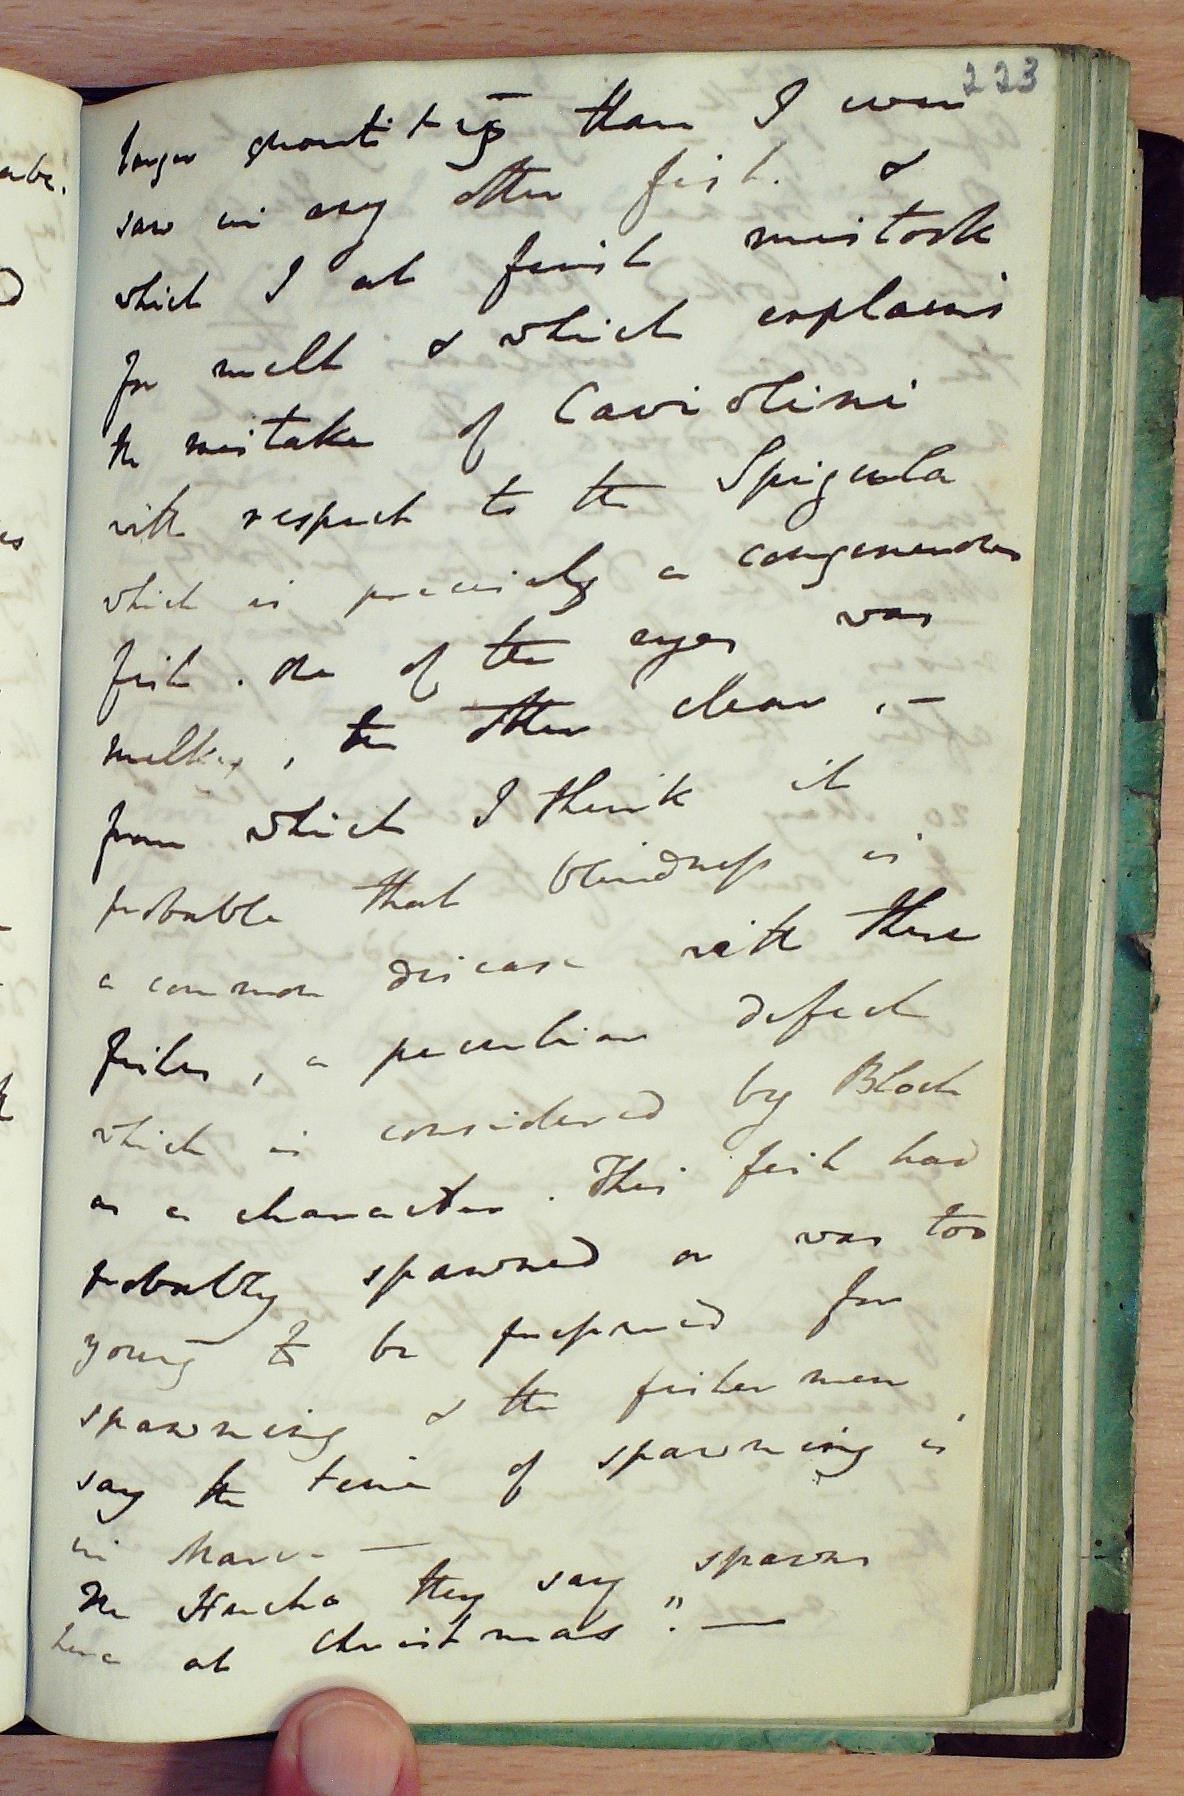 223
larger quantities than I ever
saw in any other fish. &
which I at first mistook
for melt & which explains
the mistake of Caviolini
with respect to the Spigula
which is precisely a congenerous
fish. One of the eyes was
milky, the other clear, —
from which I think it
probable that blindness is
a common disease with these
fishes, a peculiar defect
which is considered by Bloch
as a character. This fish had
probably spawned or was too
young to be prepared for
spawning & the fishermen
say the time of spawning is
in March —
The Hucho they say spawns
here at Christmas". —